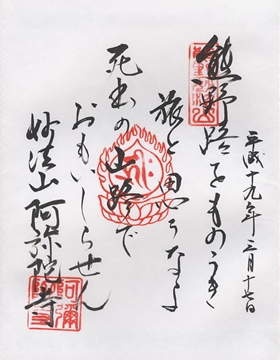 平成十九年三月十七日
熊野路をものうき
旅と思うなよ
死出の山路で
おもいしらせん
妙法山阿弥陀寺